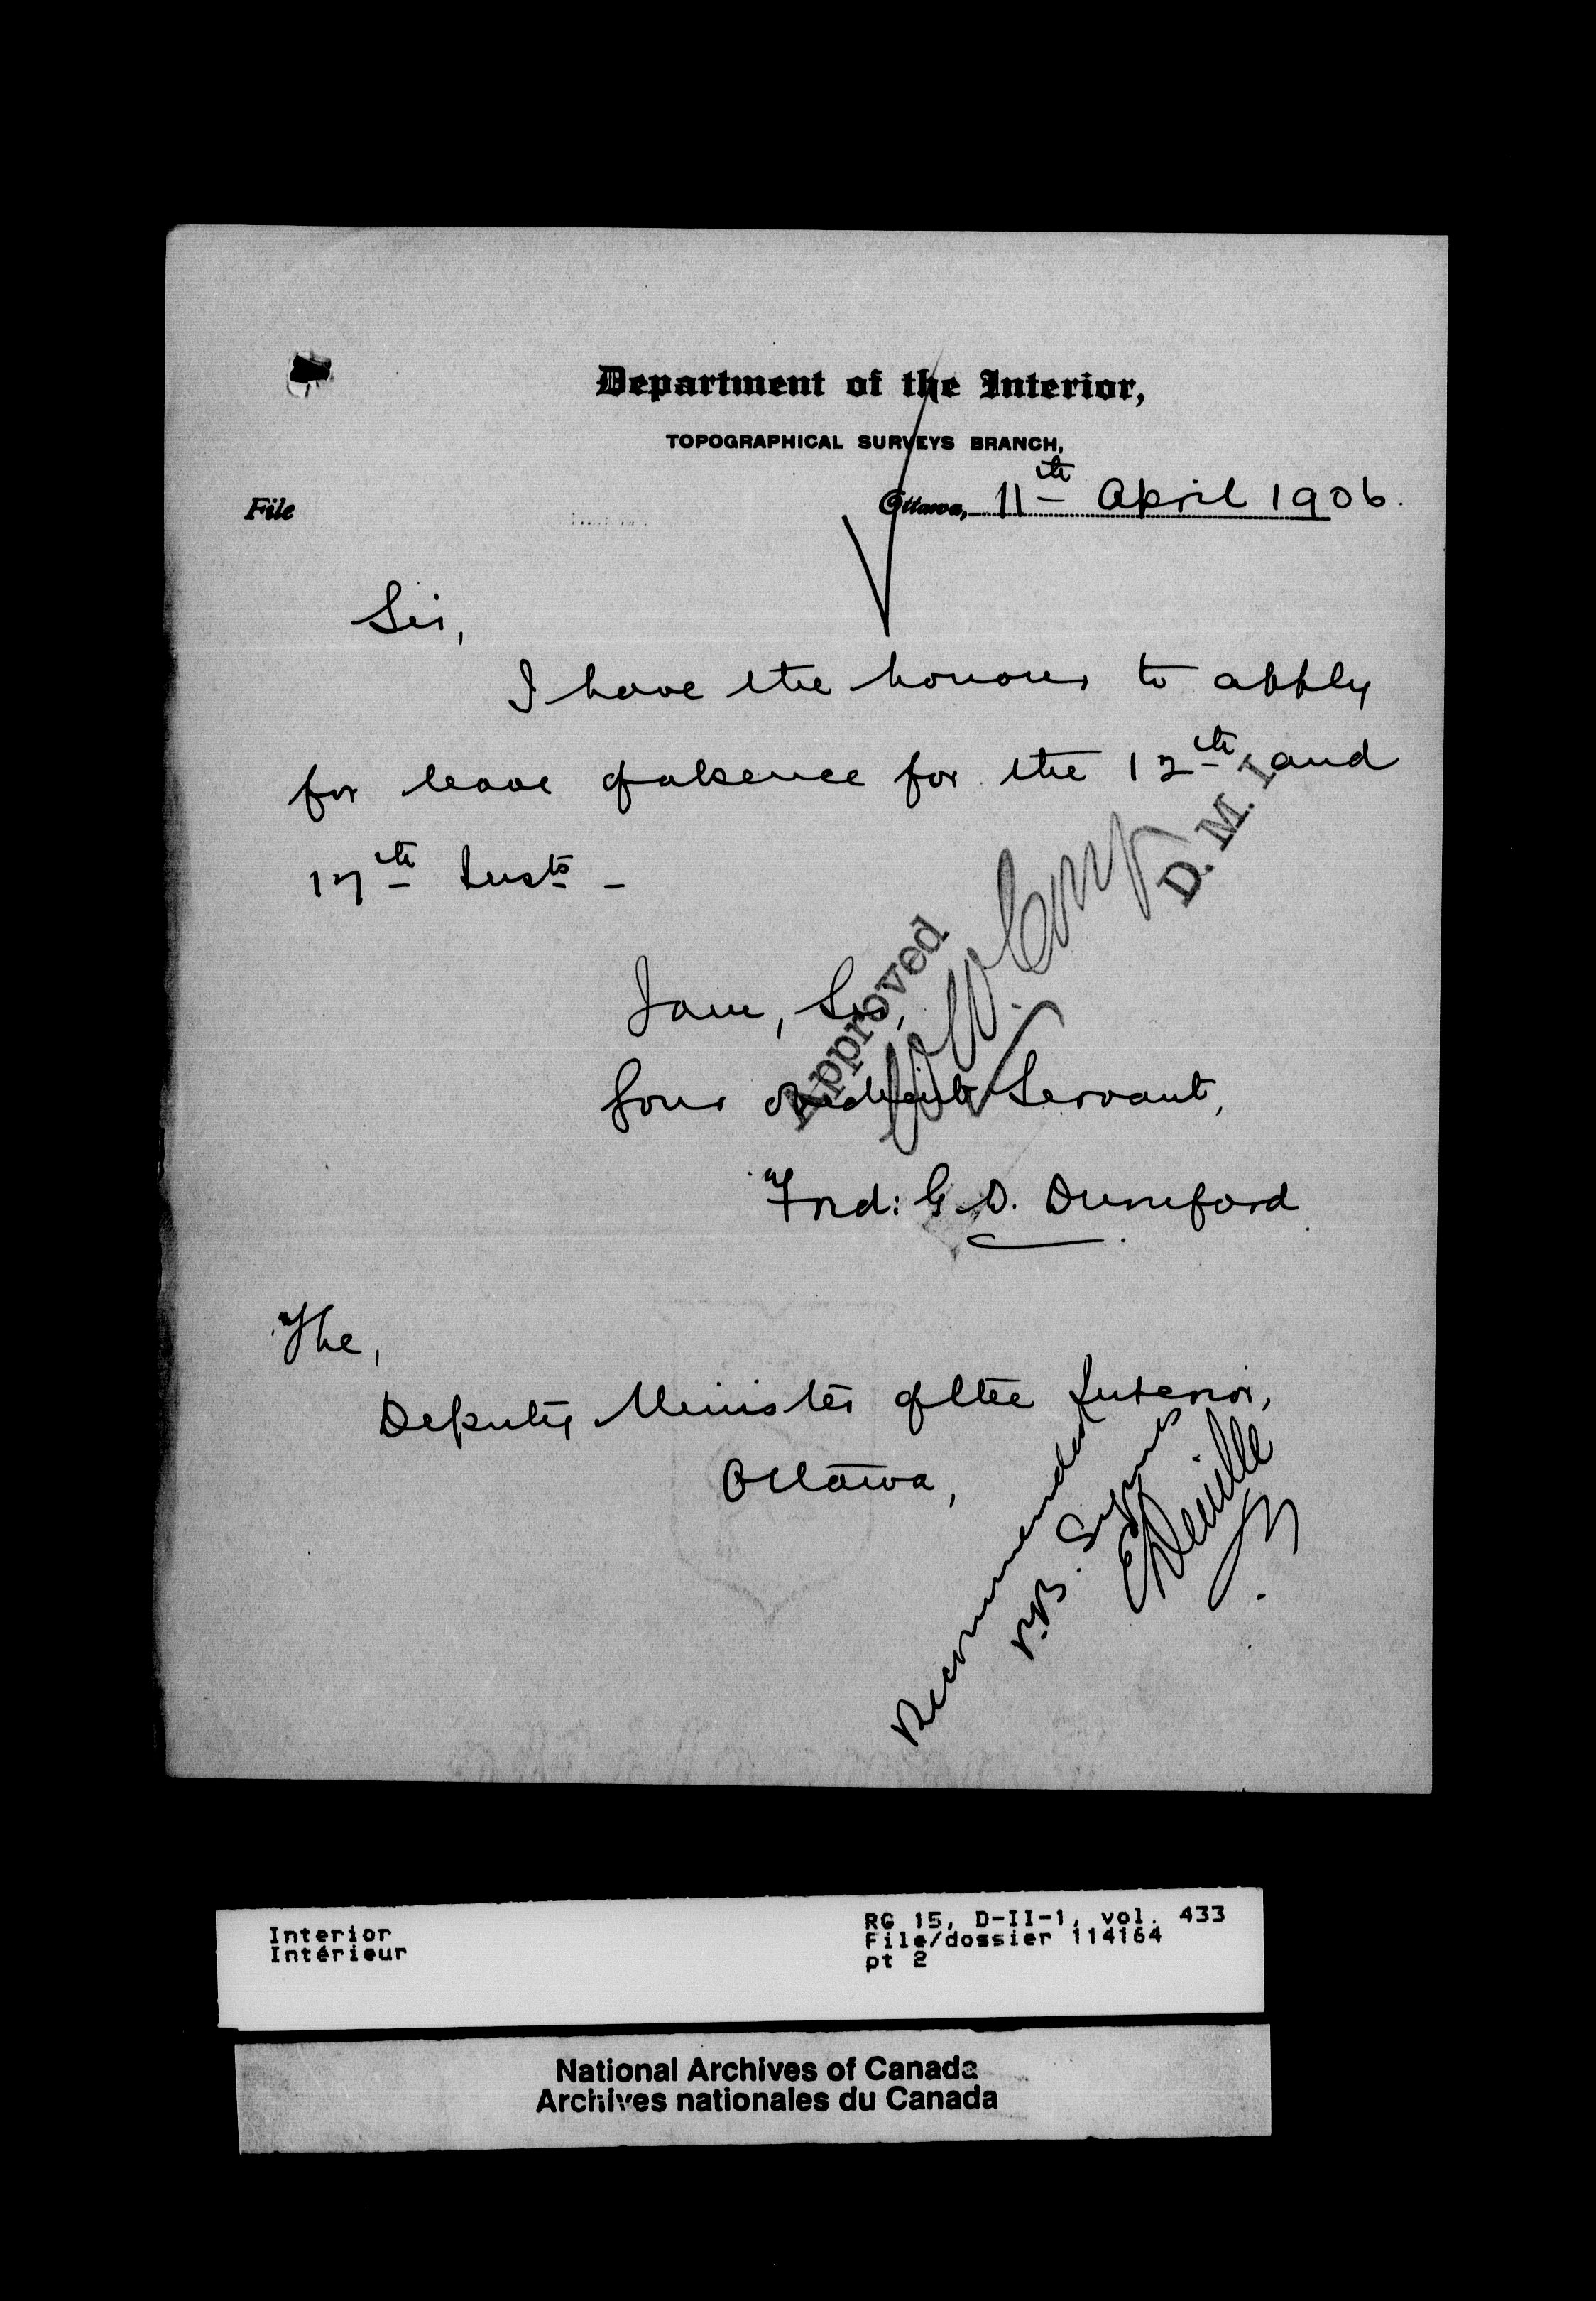 Department of the Interior,
TOPOGRAPHICAL SURVEYS BRANCH,
File
Ottawa, 11th April 1906.
Sir,
I have the honour to apply
for leave of absence for the 12th and
17th Insts -
I am, Sir,
Your obedient Servant,
Ferd: G. D. Durnford
Approved
W. W. Cory
D. M. I.
The,
Deputy Minister of the Interior,
Ottawa,
Recommended
P.B. Symes
E Deville
Interior
Intérieur
RG 15, D-II-1, vol. 433
File/dossier 114164
pt 2
National Archives of Canada
Archives nationales du Canada